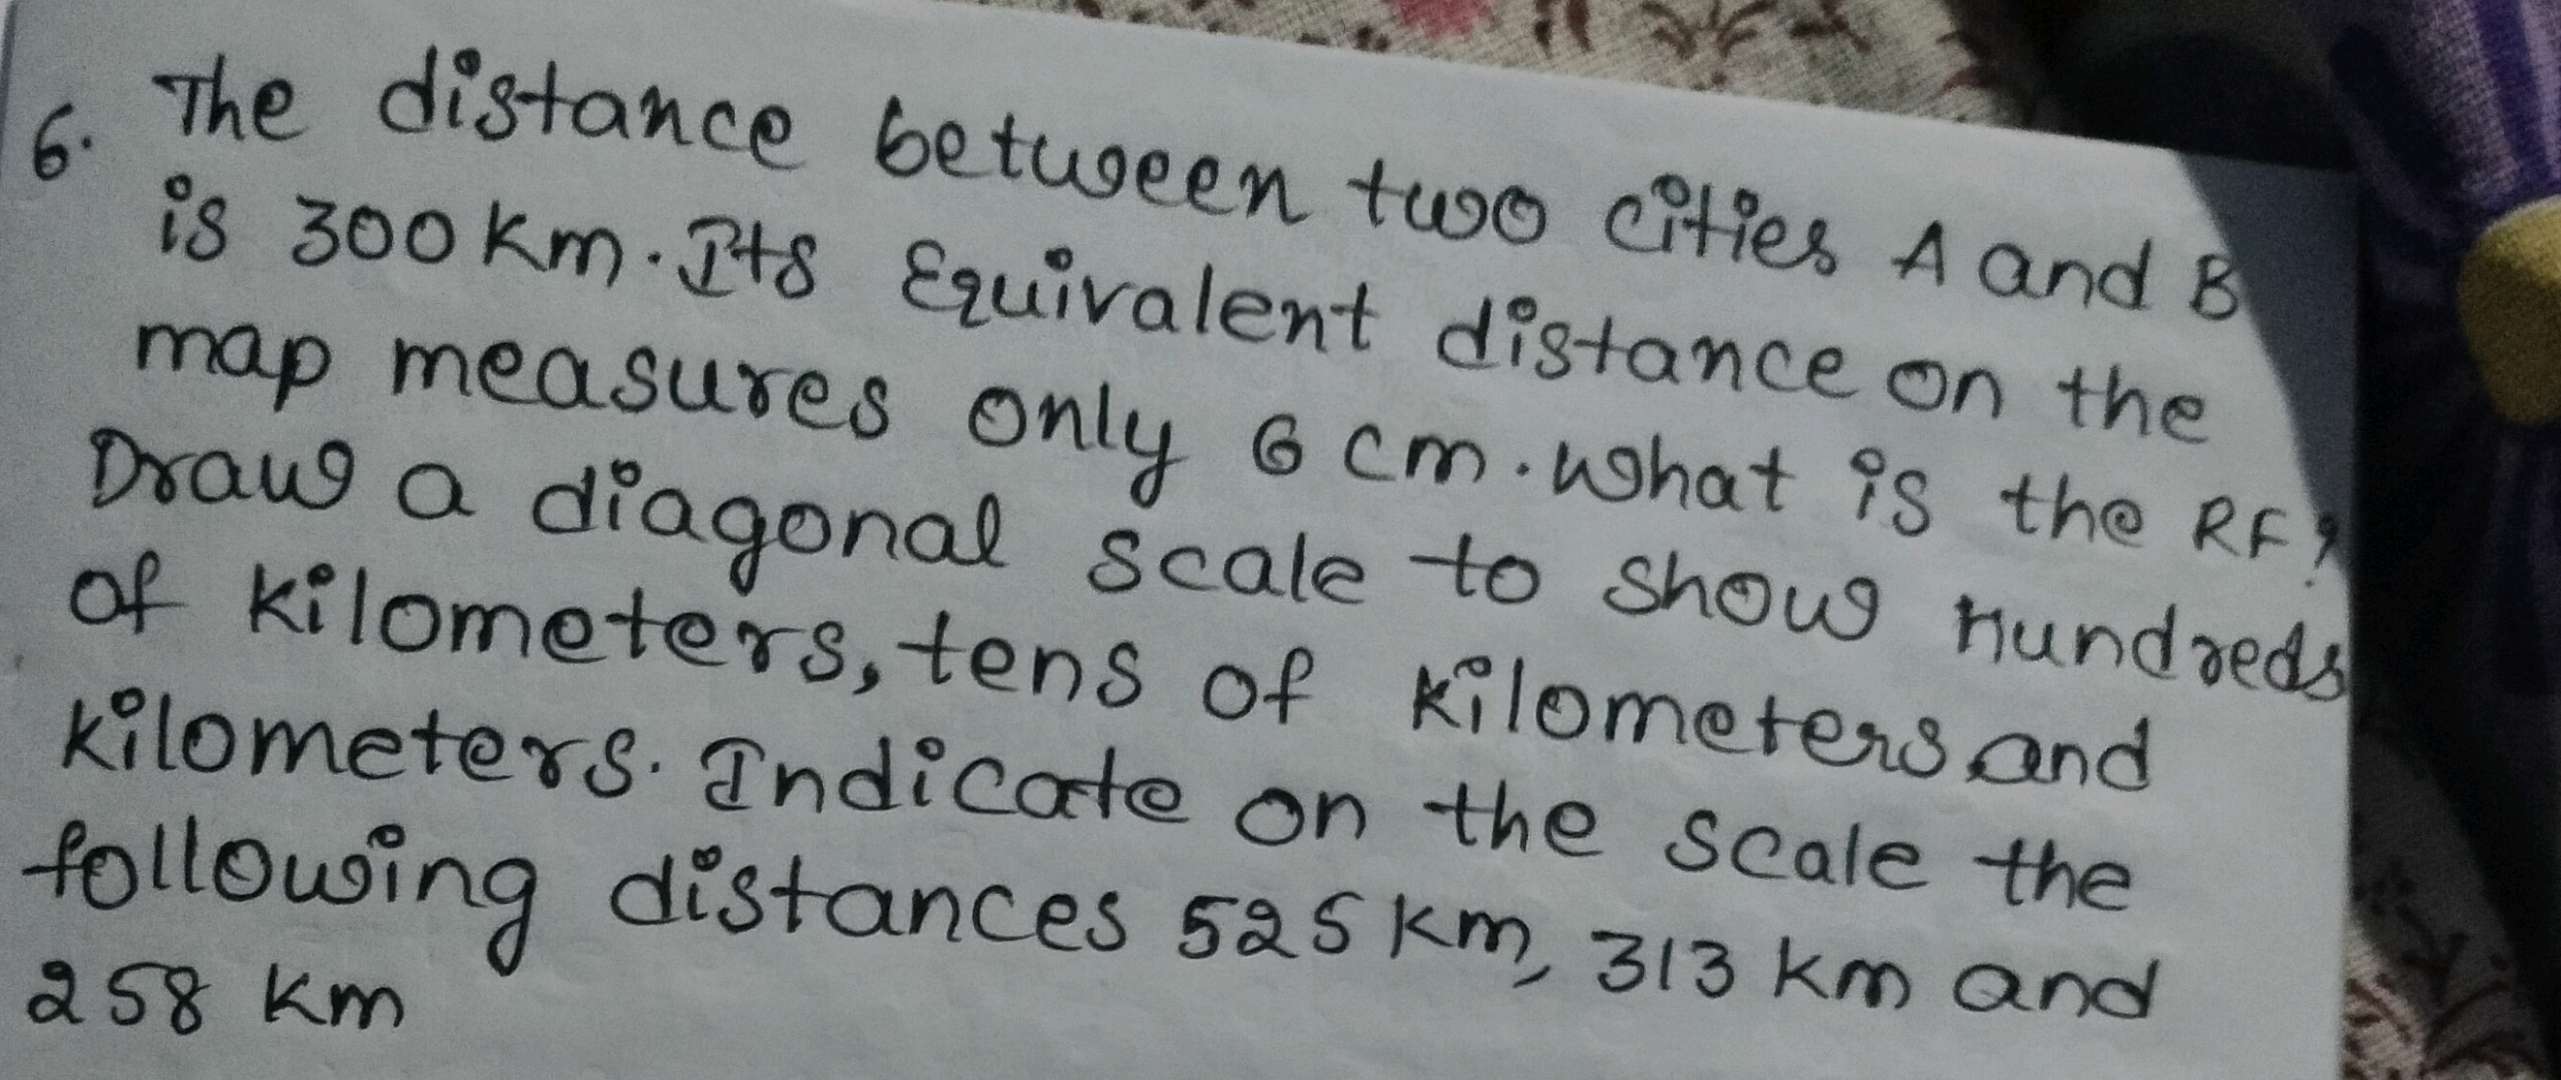 6. The distance between two cities A and B
is 300 km. Its Equivalent distance on the
map measures only 6 cm. What is the RF?
Draw a diagonal scale to show Hundreds
of kilometers, tens of kilometers and
kilometers. Indicate on the scale the
following distances 525 km, 313 km and
258 km